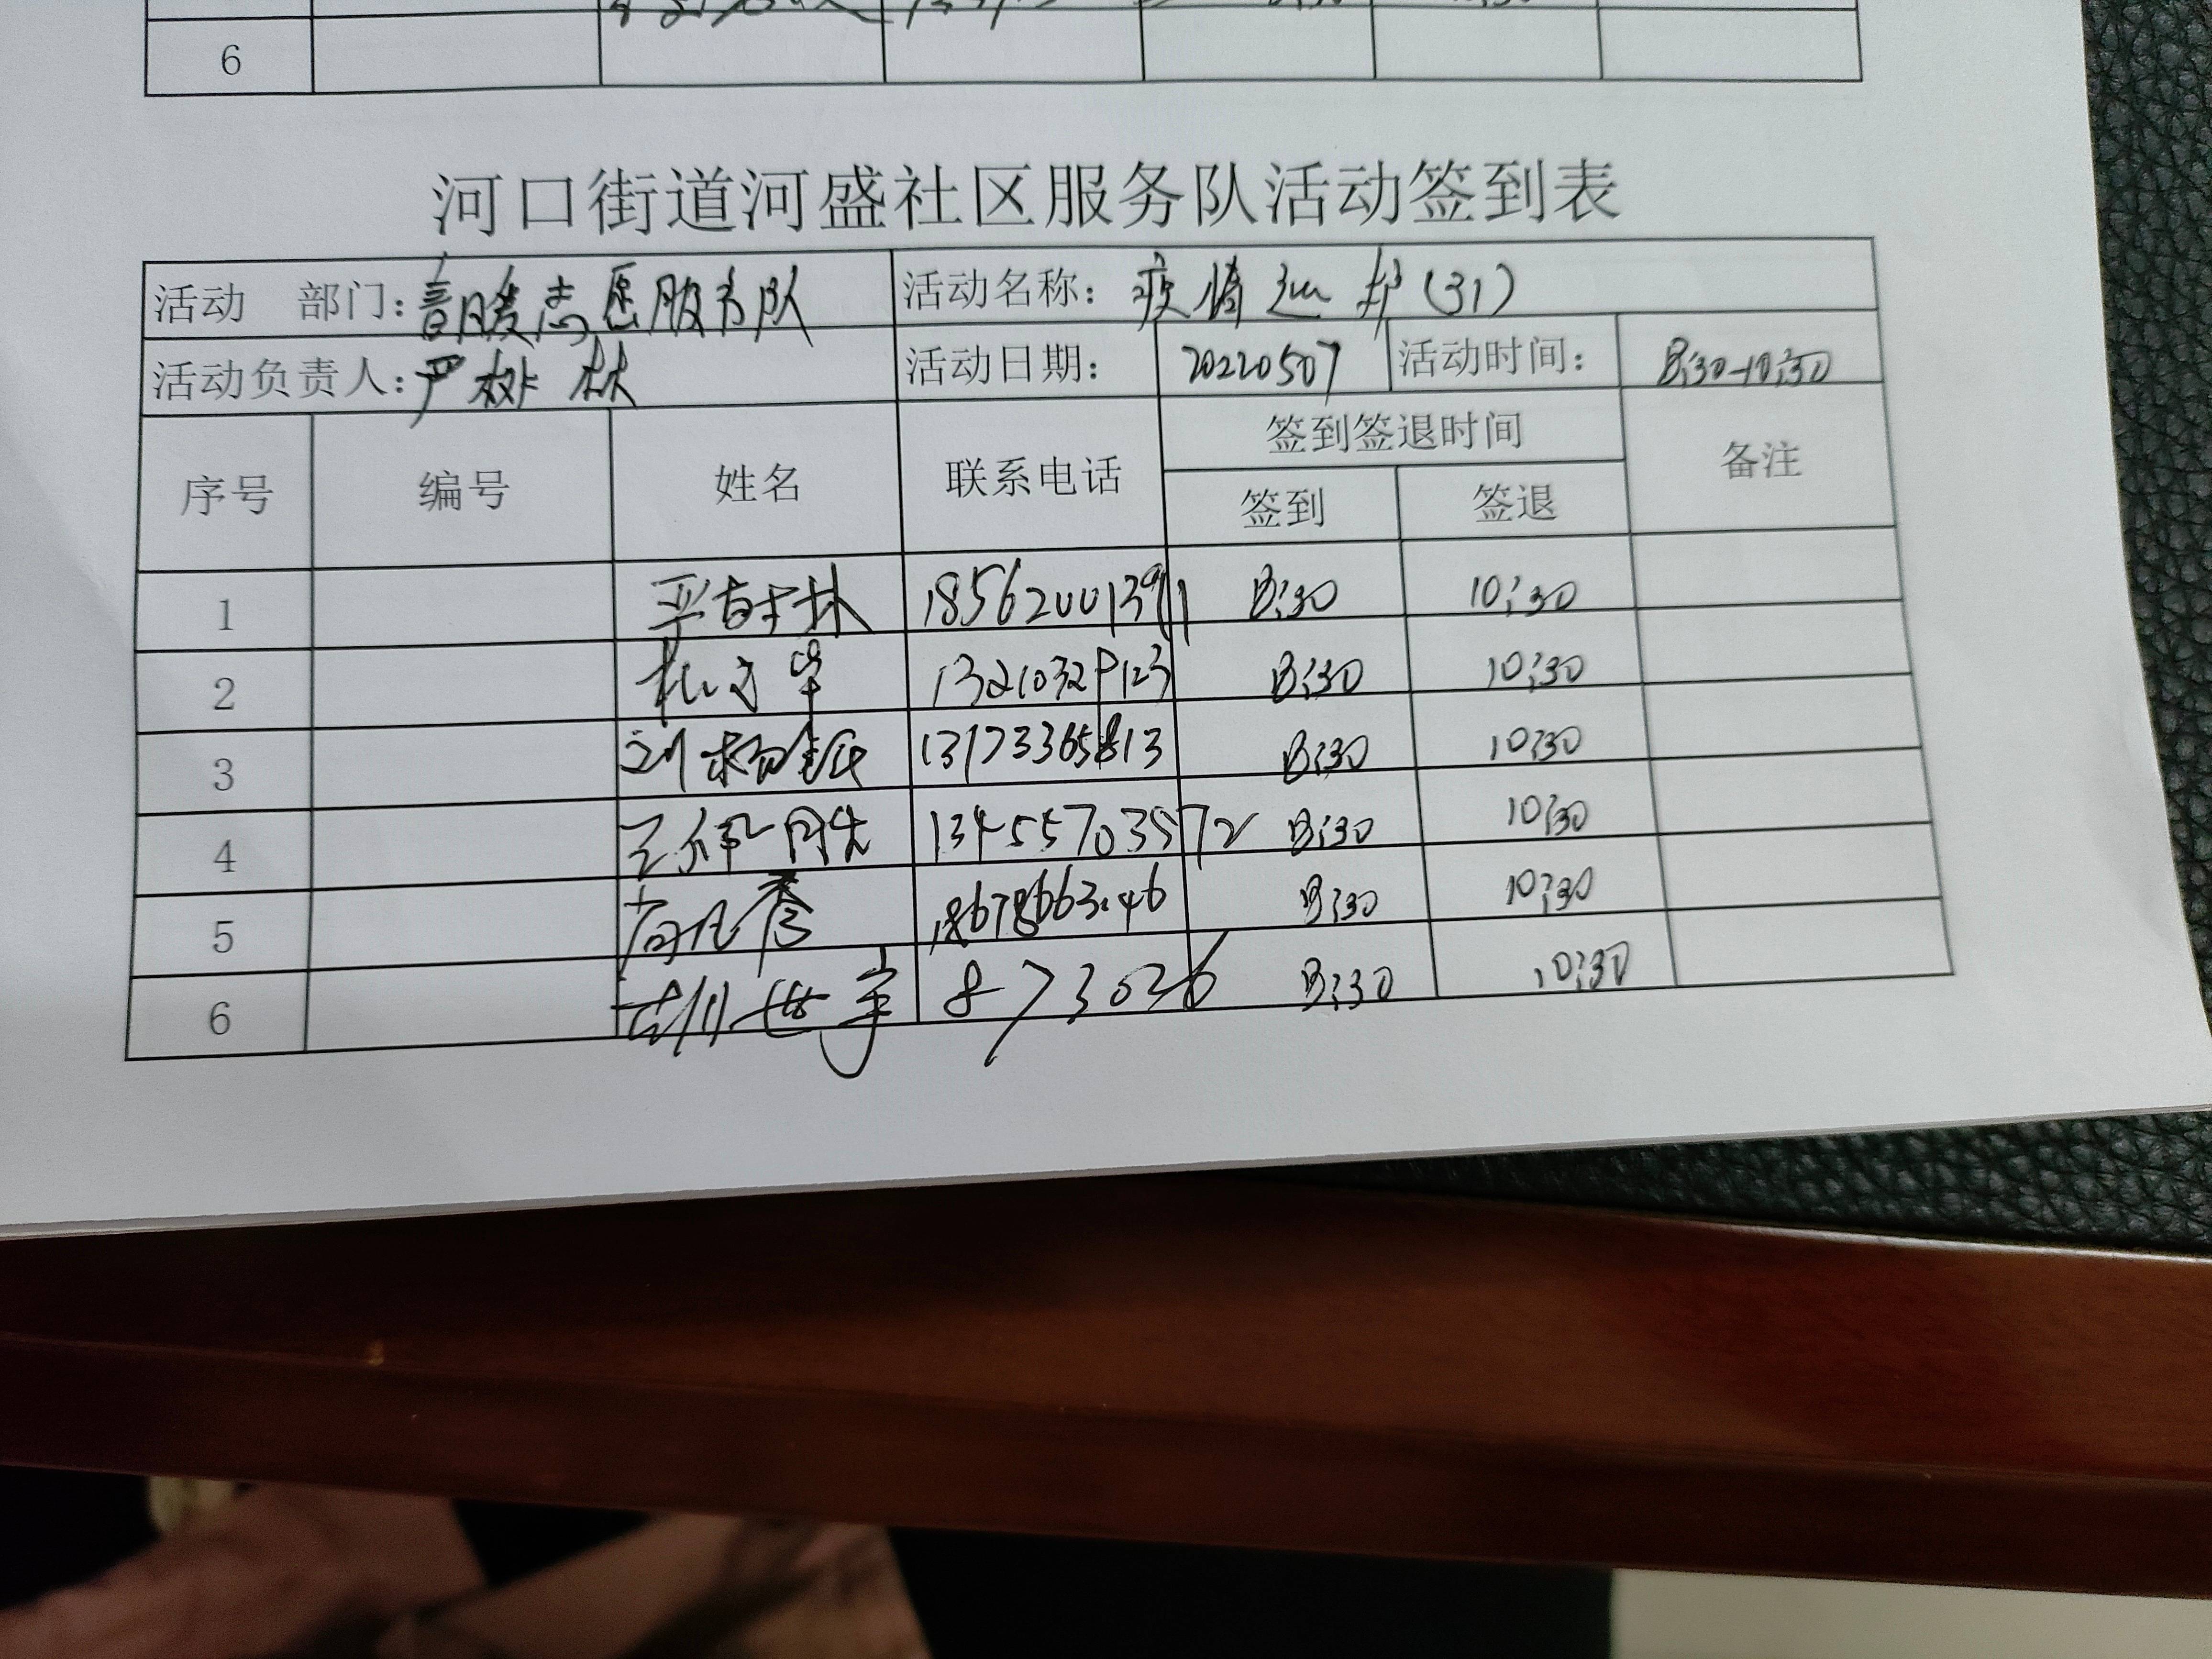 6
河口街道河盛社区服务队活动签到表
活动 部门: 暖志愿服务队 活动名称: 疫情 (31)
活动负责人: 严树林 活动日期: 20220507 活动时间: 8:30-10:30
序号 编号 姓名 联系电话 签到签退时间 备注
签到 签退
1 严树林 8:30 10:30
2 8:30 10:30
3 刘杨 13173365813 8:30 10:30
4 13455703572 8:30 10:30
5 8:30 10:30
6 胡世 873036 8:30 10:30